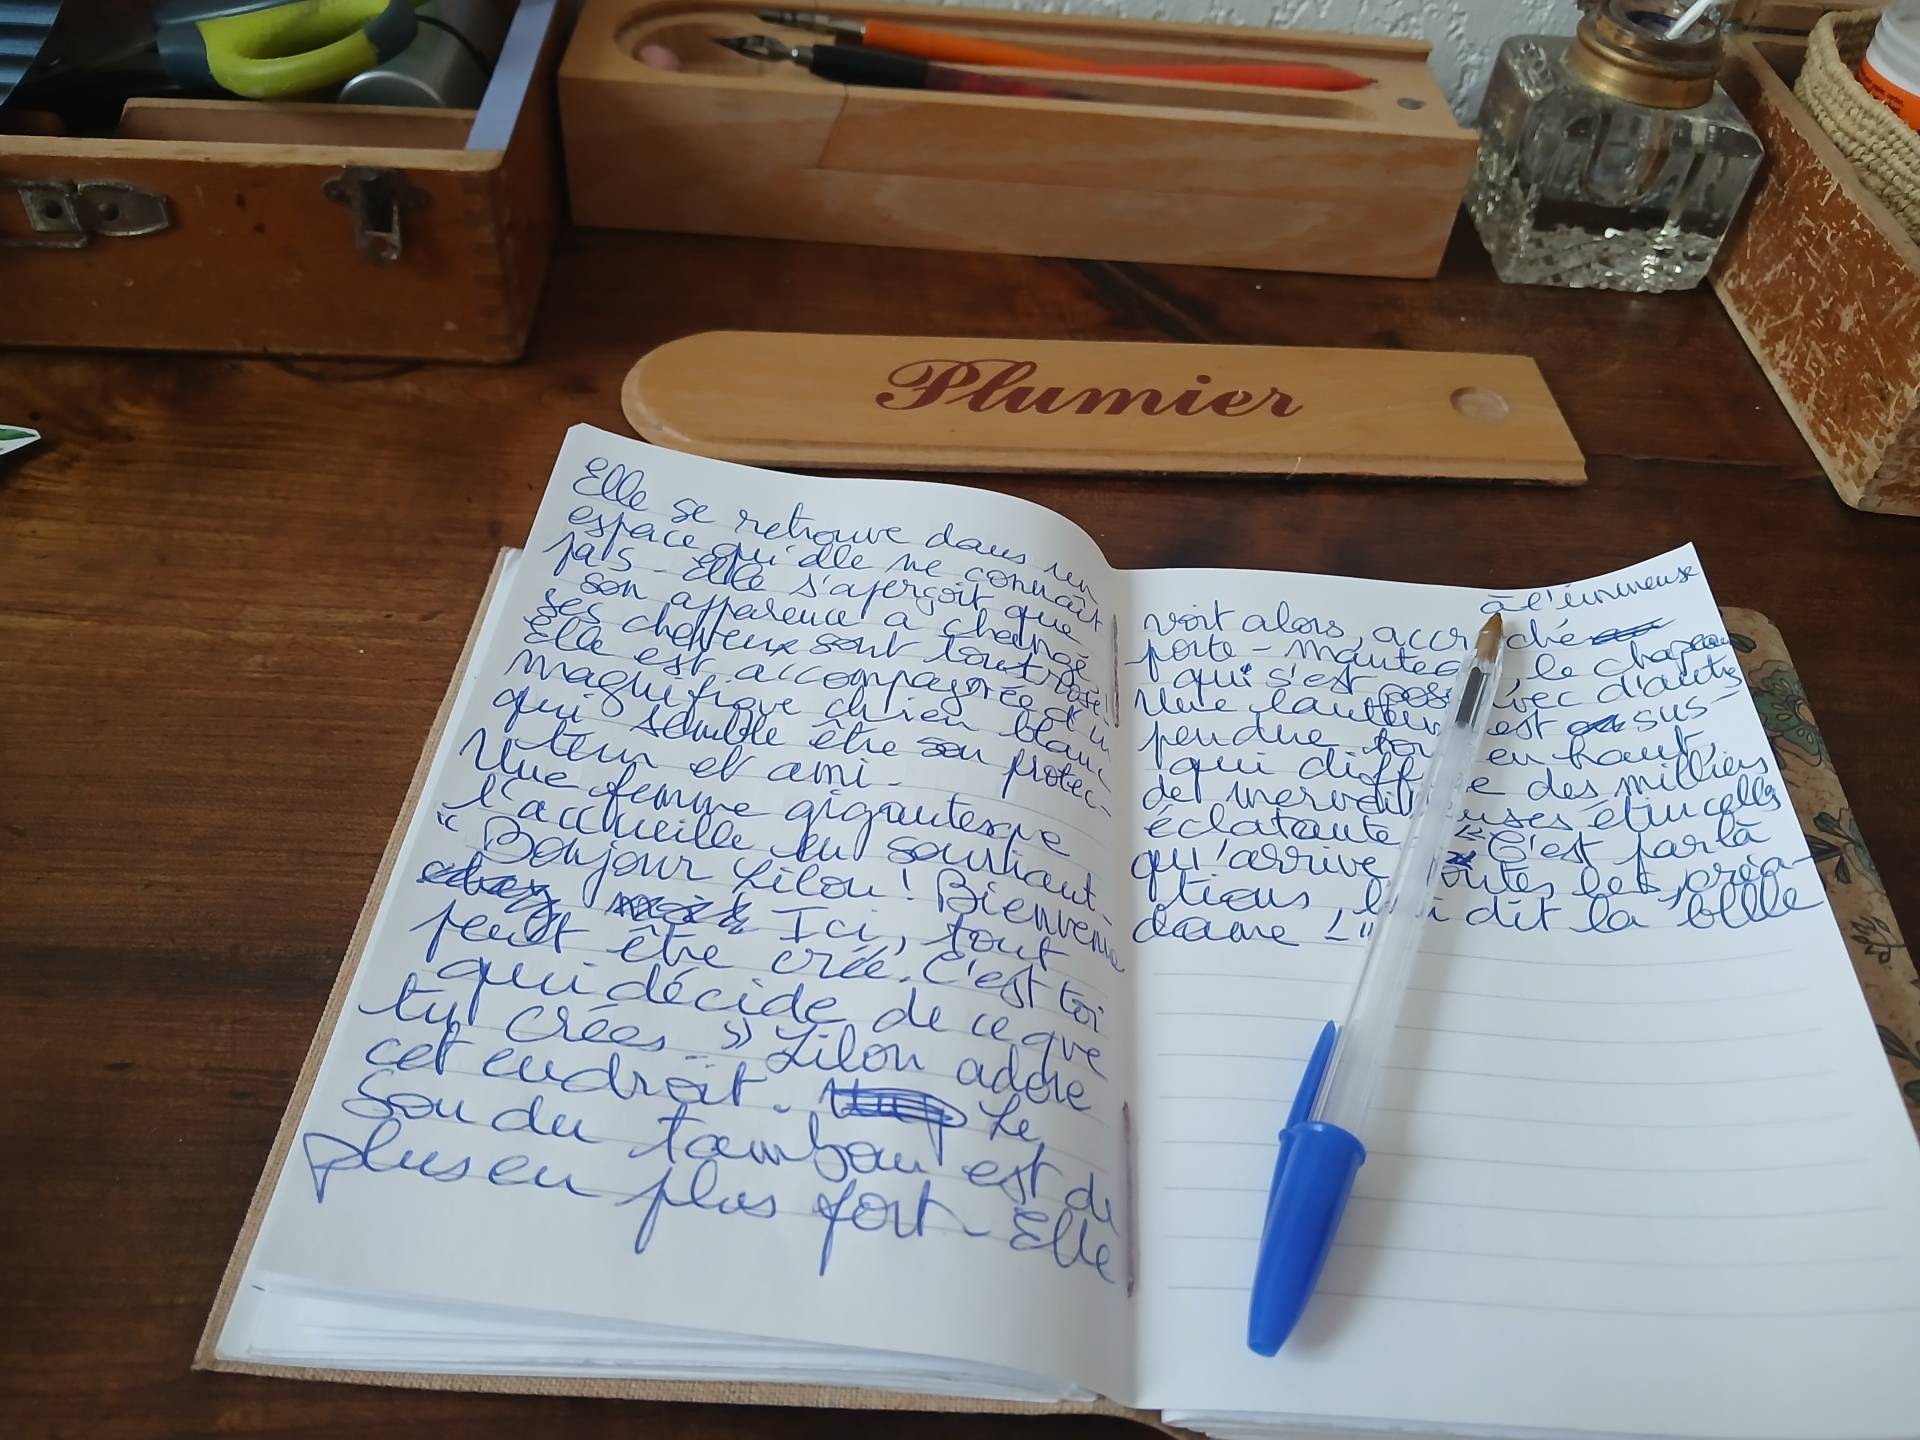 Plumier
Elle se retrouve dans un
espace qu'elle ne connaît
pas - Elle s'aperçoit que
son apparence a changé
ses cheveux sont tout roses!
Elle est accompagnée d'un
magnifique chien blanc
qui semble être son protec-
teur et ami -
Une femme gigantesque
l'accueille en souriant -
"Bonjour Lilou ! Bienvenue
Ici, tout
peut être créé. C'est toi
qui décide de ce que
tu crées - » Lilou adore
cet endroit - Le
son du tambour est de
plus en plus fort - Elle
à l'immense
voit alors, accroché
porte-manteau, le chapeau
qui s'est posé avec d'autres
Une lanterne est sus-
pendue tout en haut,
qui diffuse des milliers
de merveilleuses étincelles
éclatante "C'est par là
qu'arrive toutes les créa-
tions, lui dit la belle
dame ! "